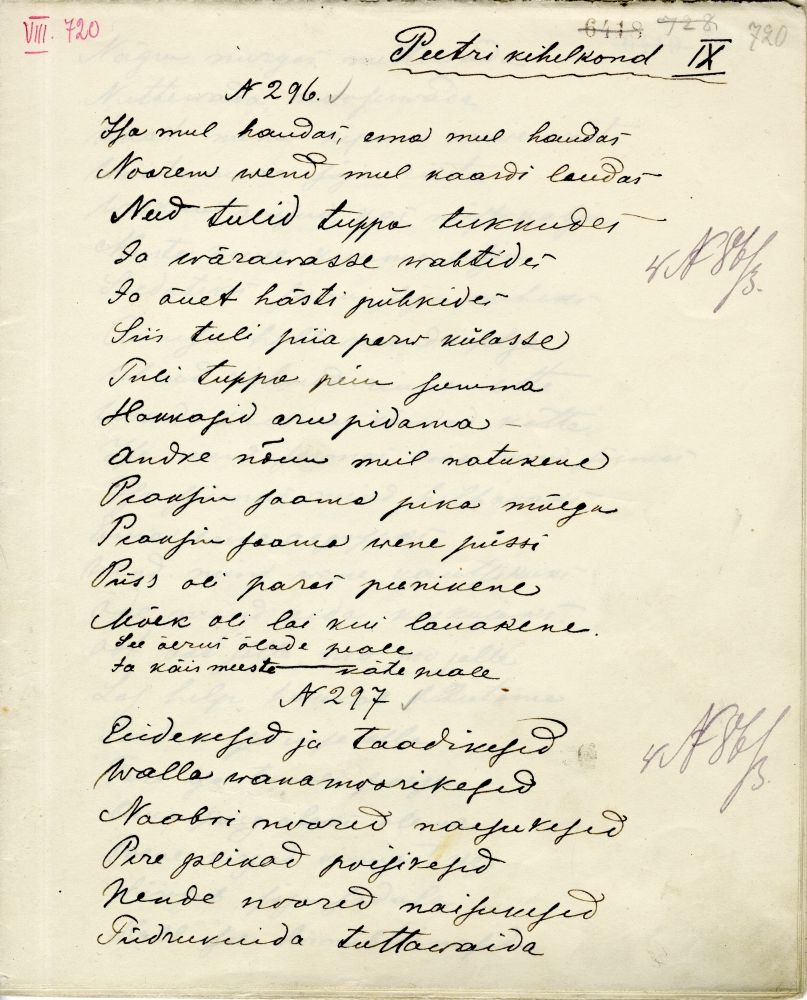 VIII. 720
6418 728 720
Peetri kihelkond IX
N 296.
Isa mul haudas, ema mul haudas
Noorem wend mul kaardi laudas
Need tulid tuppa tukkudes
Ja wärawasse wahtides
Ja õuet hästi pühkides
Siis tuli piia parw külasse
Tuli tuppa peiu summa
Hakkasid aru pidama –
Andke nõuu meil natukene
Peaksin saama pika mõega
Peaksin saama wene püssi
Püss oli paras peenikene
Mõek oli lai kui lauakene.
See äerus õlade peale
Ja käis meeste käte peale
N 297
Eidekesed ja taadikesed
Walla wanamoorikesed
Naabri noored naesukesed
Pere plikad poisikesed
Nende noored naisukesed
Tüdrukuida tuttawaida